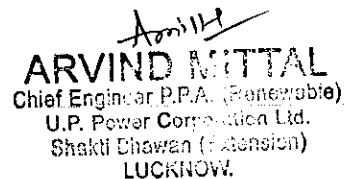 ARVIND MITTAL
Chief Engineer P.P.A. (Renewable)
U.P. Power Corporation Ltd.
Shakti Bhawan (Extension)
LUCKNOW.